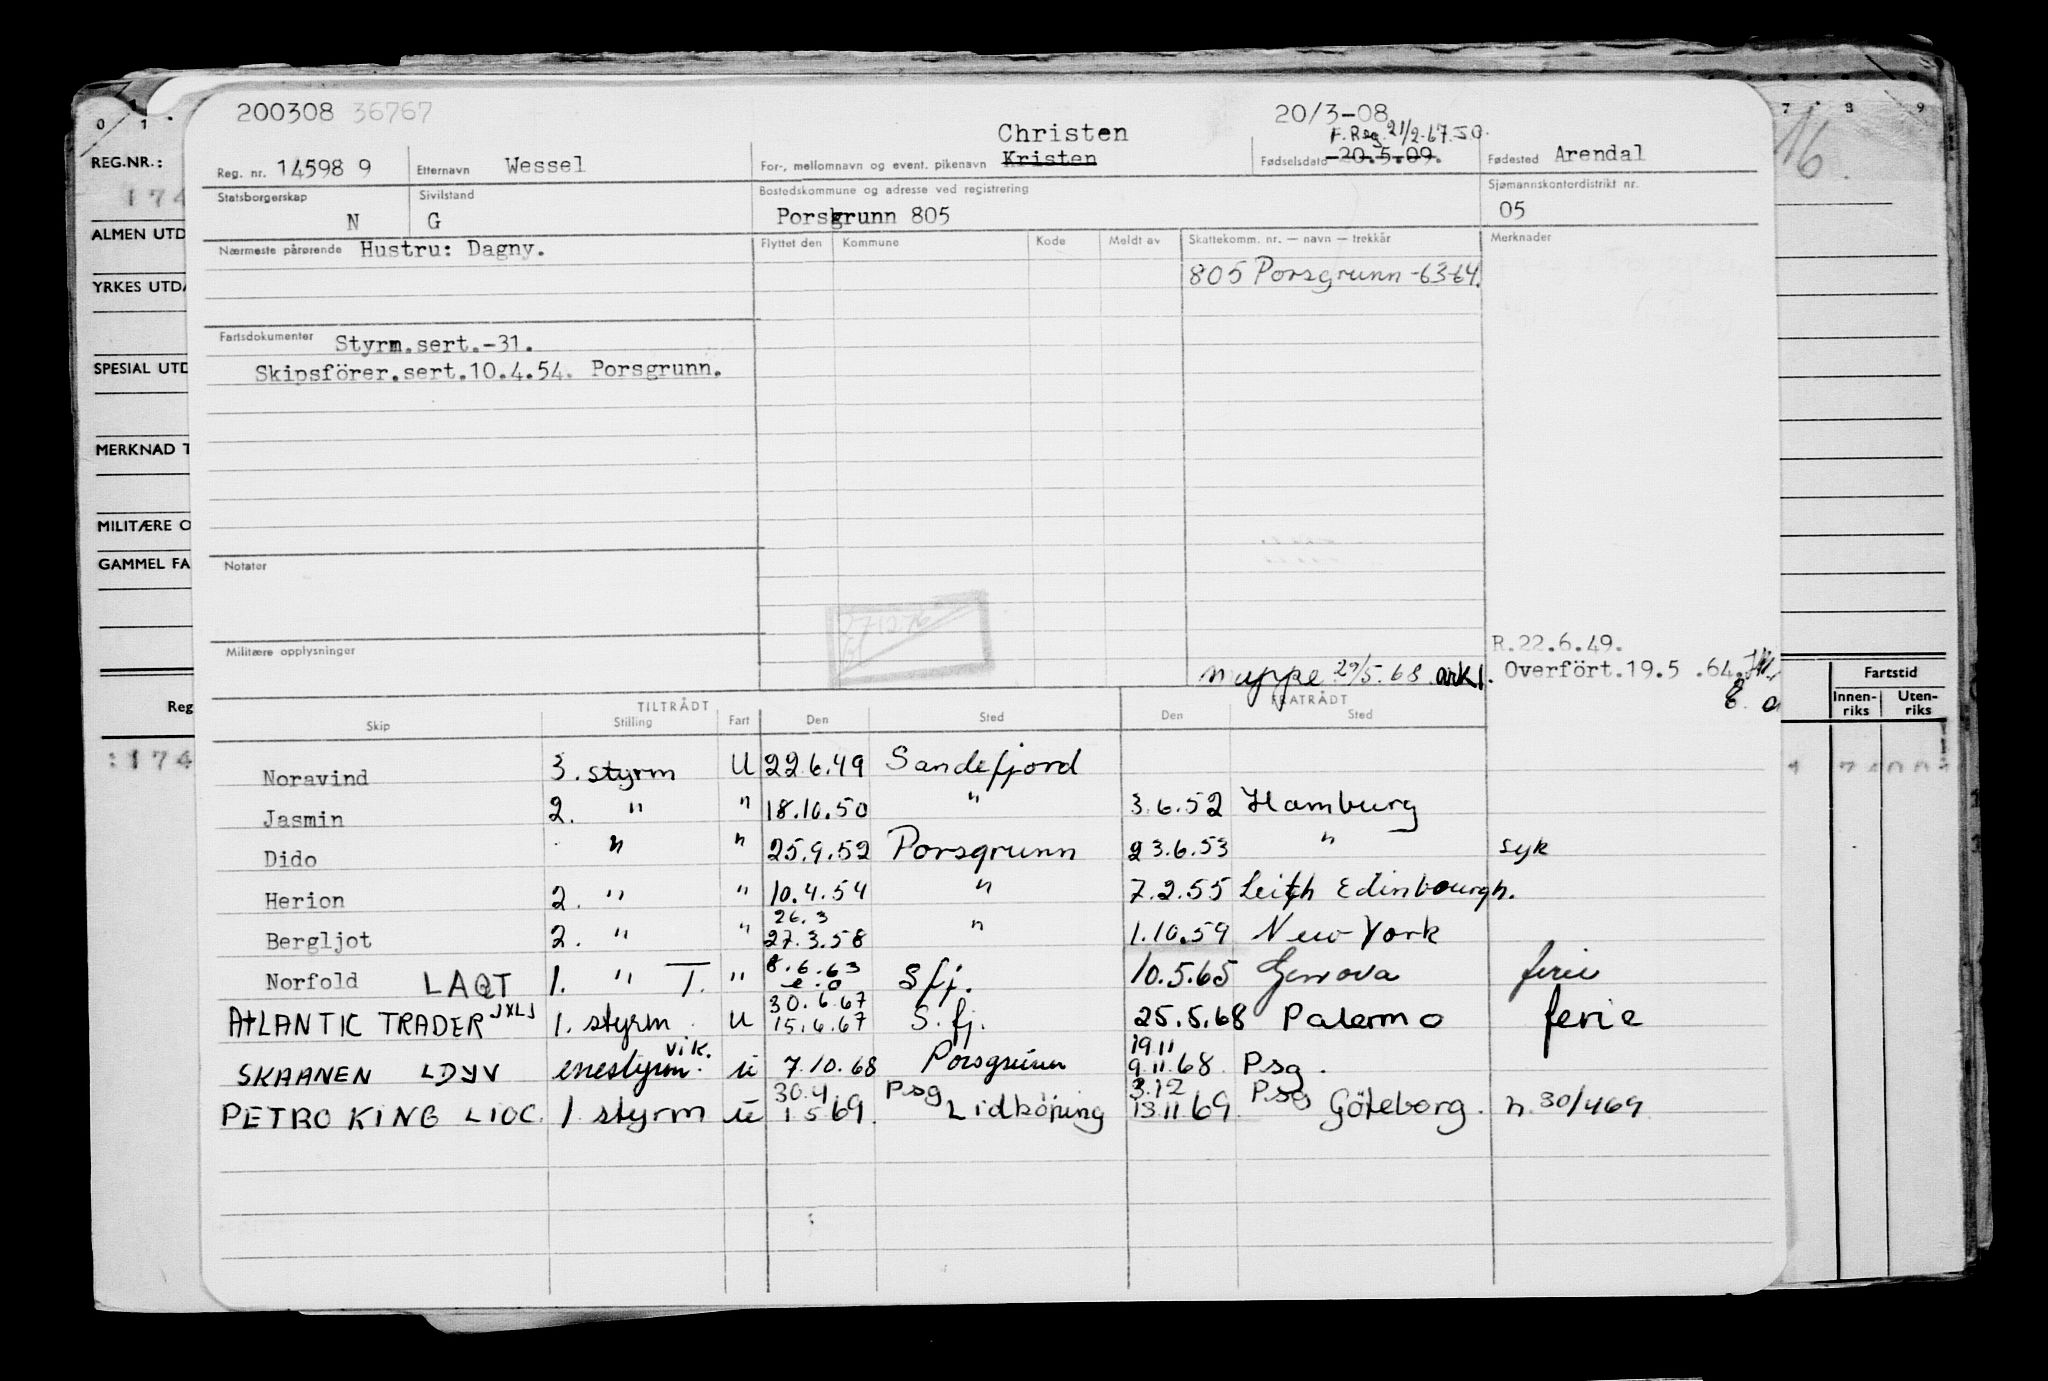 200308 36767
Christen
20/3-08
F. Reg 21/2-67 SO.
Reg. nr. 14598 9 Etternavn Wessel For-, mellomnavn og event. pikenavn Kristen Fødselsdato 20.5.09. Fødested Arendal
Statsborgerskap N Sivilstand G Bostedskommune og adresse ved registrering Porsgrunn 805 Sjømannskontordistrikt nr. 05
Nærmeste pårørende Hustru: Dagny. Flyttet den Kommune Kode Meldt av Skattekomm. nr. — navn — trekkår Merknader
805 Porsgrunn -63-64.
Fartsdokumenter Styrm.sert.-31.
Skipsförer.sert.10.4.54. Porsgrunn.
Notater
271276
Militære opplysninger
R.22.6.49.
mappe 29/5.68 arkl. Overfört.19.5 .64.
TILTRÅDT FRATRÅDT
Skip Stilling Fart Den Sted Den Sted
Noravind 3. styrm U 22.6.49 Sandefjord
Jasmin 2. " " 18.10.50 " 3.6.52 Hamburg
Dido " " 25.9.52 Porsgrunn 23.6.53 " syk
Herion 2. " " 10.4.54 " 7.2.55 Leith Edinbourgh.
26.3
Bergljot 2. " " 27.3.58 " 1.10.59 New York
Norfold LAQT 1. " T. " 8.6.63 e.o Sfj. 10.5.65 Genova ferie
30.6.67
ATLANTIC TRADER JXLJ 1. styrm U 15.6.67 S.fj. 25.5.68 Palermo ferie
vik. 19.11
SKAANEN LDYV enestyrm. u 7.10.68 Porsgrunn 9.11.68. Psg.
30.4 Psg 3.12 Psg
PETRO KING LIOC. 1. styrm u 1.5 69. Lidköping 13.11 69. Göteborg. n. 30/469
REG.NR.:
174
ALMEN UTD
YRKES UTDA
SPESIAL UTD
MERKNAD T
MILITÆRE O
GAMMEL FA
Reg
:174
0 1
7 8 9
16.
Fartstid
Innen-riks Uten-riks